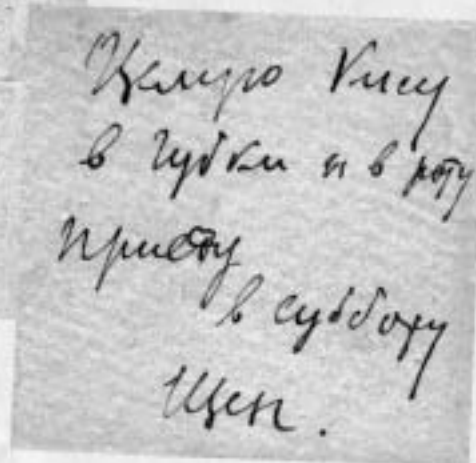 Целую Кису
в губки и в роту
приеду
в субботу
Щен.